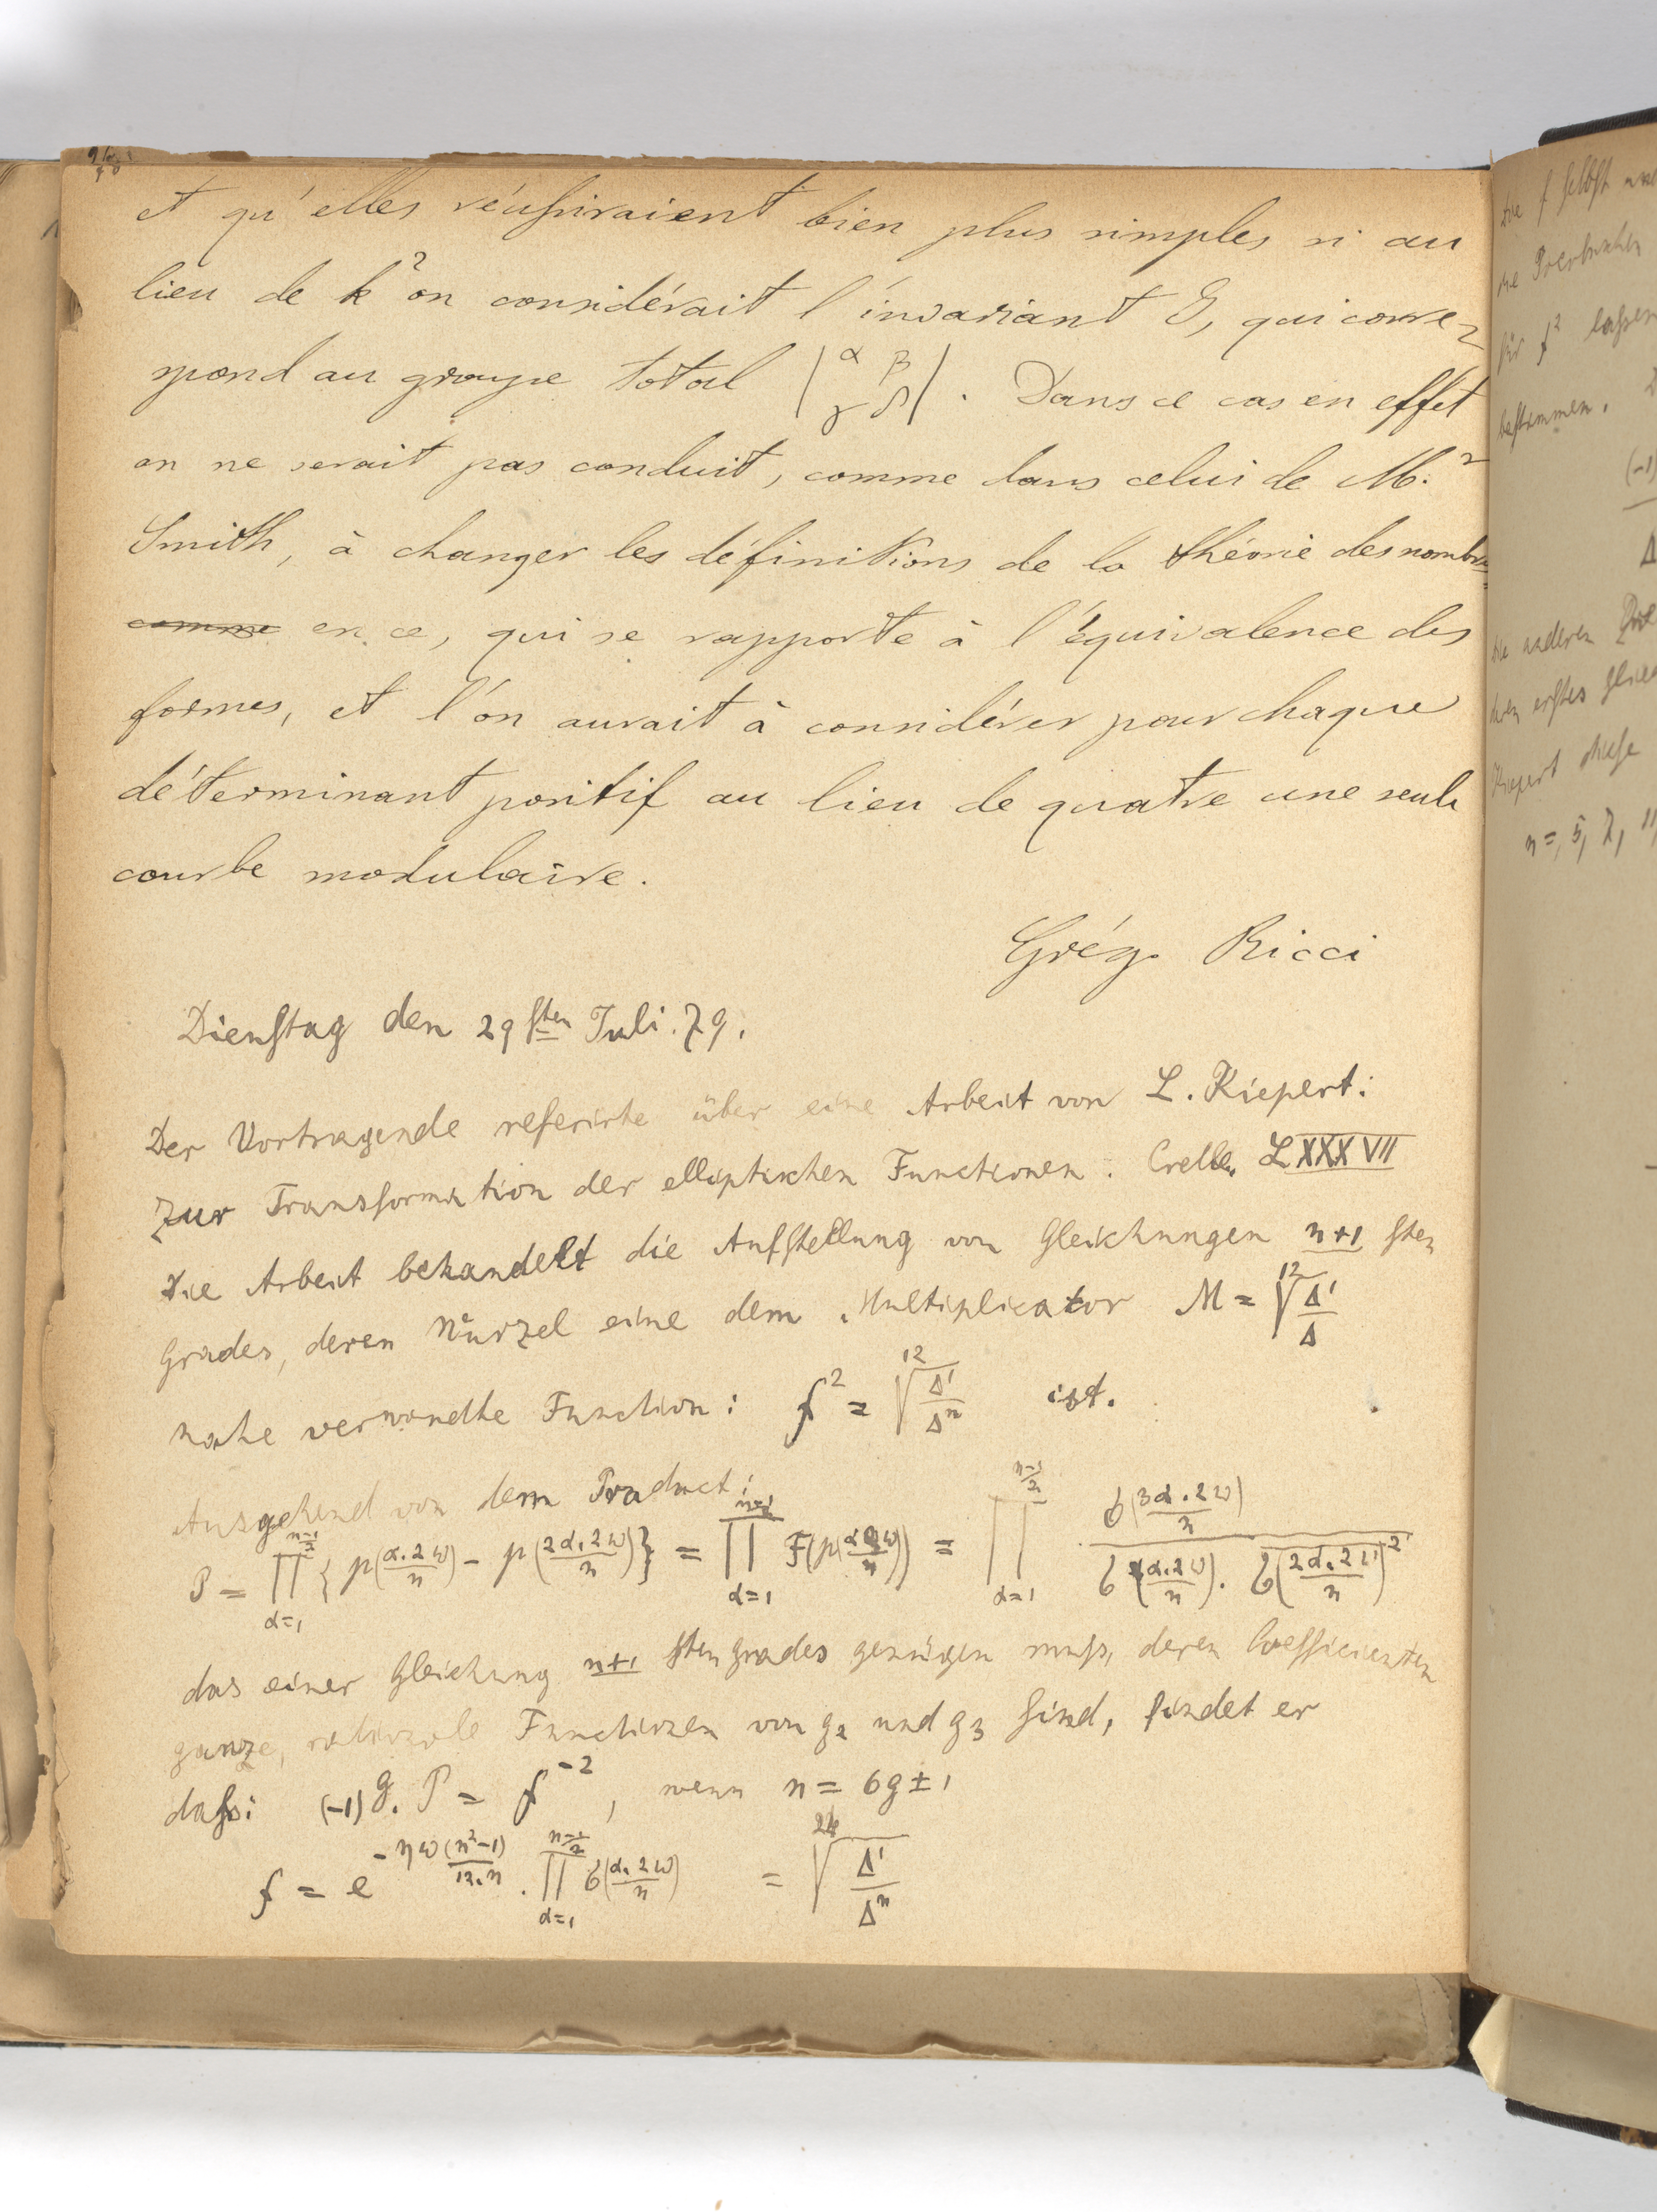 et qu'elles réussiraient bien plus simples si au
lieu de k² on considérait l'invariant J, qui corre-
spond au groupe total |α β γ δ|. Dans ce cas en effet
on ne serait pas conduit, comme dans celui de M.r
Smith, à changer les définitions de la théorie des nombres
comme en ce, qui se rapporte à l'équivalence des
formes, et l'on aurait à considérer pour chaque
déterminant positif au lieu de quatre une seule
courbe modulaire.
Grég. Ricci
Dienstag den 29sten Juli. 79.
Der Vortragende referirte über eine Arbeit von L. Kiepert:
Zur Transformation der elliptischen Functionen. Crelle, LXXXVII
Die Arbeit behandelt die Aufstellung von Gleichungen n+1 sten
Grades, deren Wurzel eine dem Multiplicator M = ¹²√(Δ'/Δ)
nahe verwandte Function: f² = ¹²√(Δ'/Δⁿ) ist.
Ausgehend von dem Product:
P = ∏_{α=1}^{(n-1)/2} { p(α.2ω/n) - p(2α.2ω/n) } = ∏_{α=1}^{(n-1)/2} F(p(α2ω/n)) = ∏_{α=1}^{(n-1)/2} σ(3α.2ω/n) / σ(α.2ω/n). σ(2α.2ω/n)²
das einer Gleichung n+1 sten Grades genügen muß, deren Coefficienten
ganze, rationale Functionen von g₂ und g₃ sind, findet er
daß: (-1)^g. P = f⁻², wenn n = 6g ± 1
f = e^{-ηω(n²-1)/12.n} . ∏_{α=1}^{(n-1)/2} σ(α.2ω/n) = ²⁴√(Δ'/Δⁿ)
die f selbst
für f² lassen
bestimmen.
(-1)
Δ
die anderen
deren erstes Glied
Kiepert diese
n = 5, 7, 11,